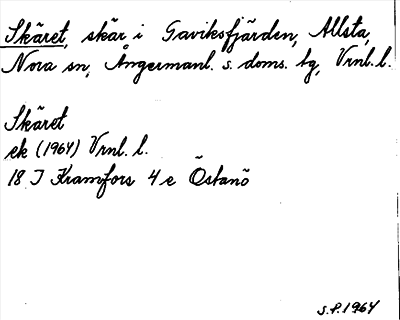 Skäret, skär i Gaviksfjärden, Allsta,
Nora sn, Ångermanl. s. doms. tg, Vrnl. l.
Skäret
ek (1964) Vrnl. l.
18 I Kramfors 4 e Östanö
S.P. 1964